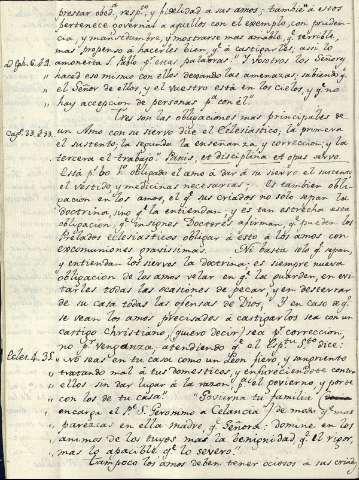 prestar obed.ª, resp.to, y fidelidad à sus amos; tambien à estos
pertenece governar à aquellos con el exemplo, con pruden-
cia, y mansedumbre, y mostrarse mas amable, q.e terrible,
mas propenso à hacerles bien, q.e à castigarles, asi lo
amonesta S. Pablo p.r estas palabras: "Y vostros los Señores,
haced eso mismo con ellos dexando las amenazas, sabiendo q.e
el Señor de ellos, y el vuestro està en los cielos, y q.e no
hay accepcion de personas p.a con el."
Tres son las obligaciones mas principales de
un Amo con su siervo dice el Eclesiastico, la primera
el sustento, la segunda la enseñanza, y correccion; y la
tercera el trabajo: Panis, et disciplina et opus servo.
Està p.s obligado el amo à dar à su siervo el sustento,
el vestido, y medicinas necesarias; Es tambien obli-
gacion en los amos, el q.e sus criados no solo sepan la
doctrina, sino q.e la entiendan; y es tan estrecha esta
obligacion, q.e insignes Doctores afirman, q.e pueden los
Prelados Eclesiasticos obligar à esto à los amos con
excomuniones gravisimas. No basta solo q.e sepan
y entiendan los siervos la doctrina; es siempre nueva
obligacion de los amos velar en q.e la guarden, en evi-
tarles todas las ocasiones de pecar, y en desterrar
de su casa todas las ofensas de Dios, Y en caso q.e
se vean los amos precisados à castigarlos sea con un
castigo Christiano, quiero decir, sea p.r correccion,
no p.r venganza, atendiendo q.e el Esp.tu S.to dice:
"No seas en tu casa como un Leon fiero, y sangriento
" tratando mal à tus domesticos, y enfureciendote contra
" ellos sin dar lugar à la razon p.a el govierno, y porte
" con los de tu casa." "Govierna tu familia
" encarga el P.e S. Geronimo a Celancia) de modo q.e mas
" parezcas en ella madre, q.e Señora: domine en los
" animos de los tuyos mas la benignidad q.e el rigor,
" mas lo apacible q.e lo severo."
Tampoco los amos deben tener ociosos à sus criad